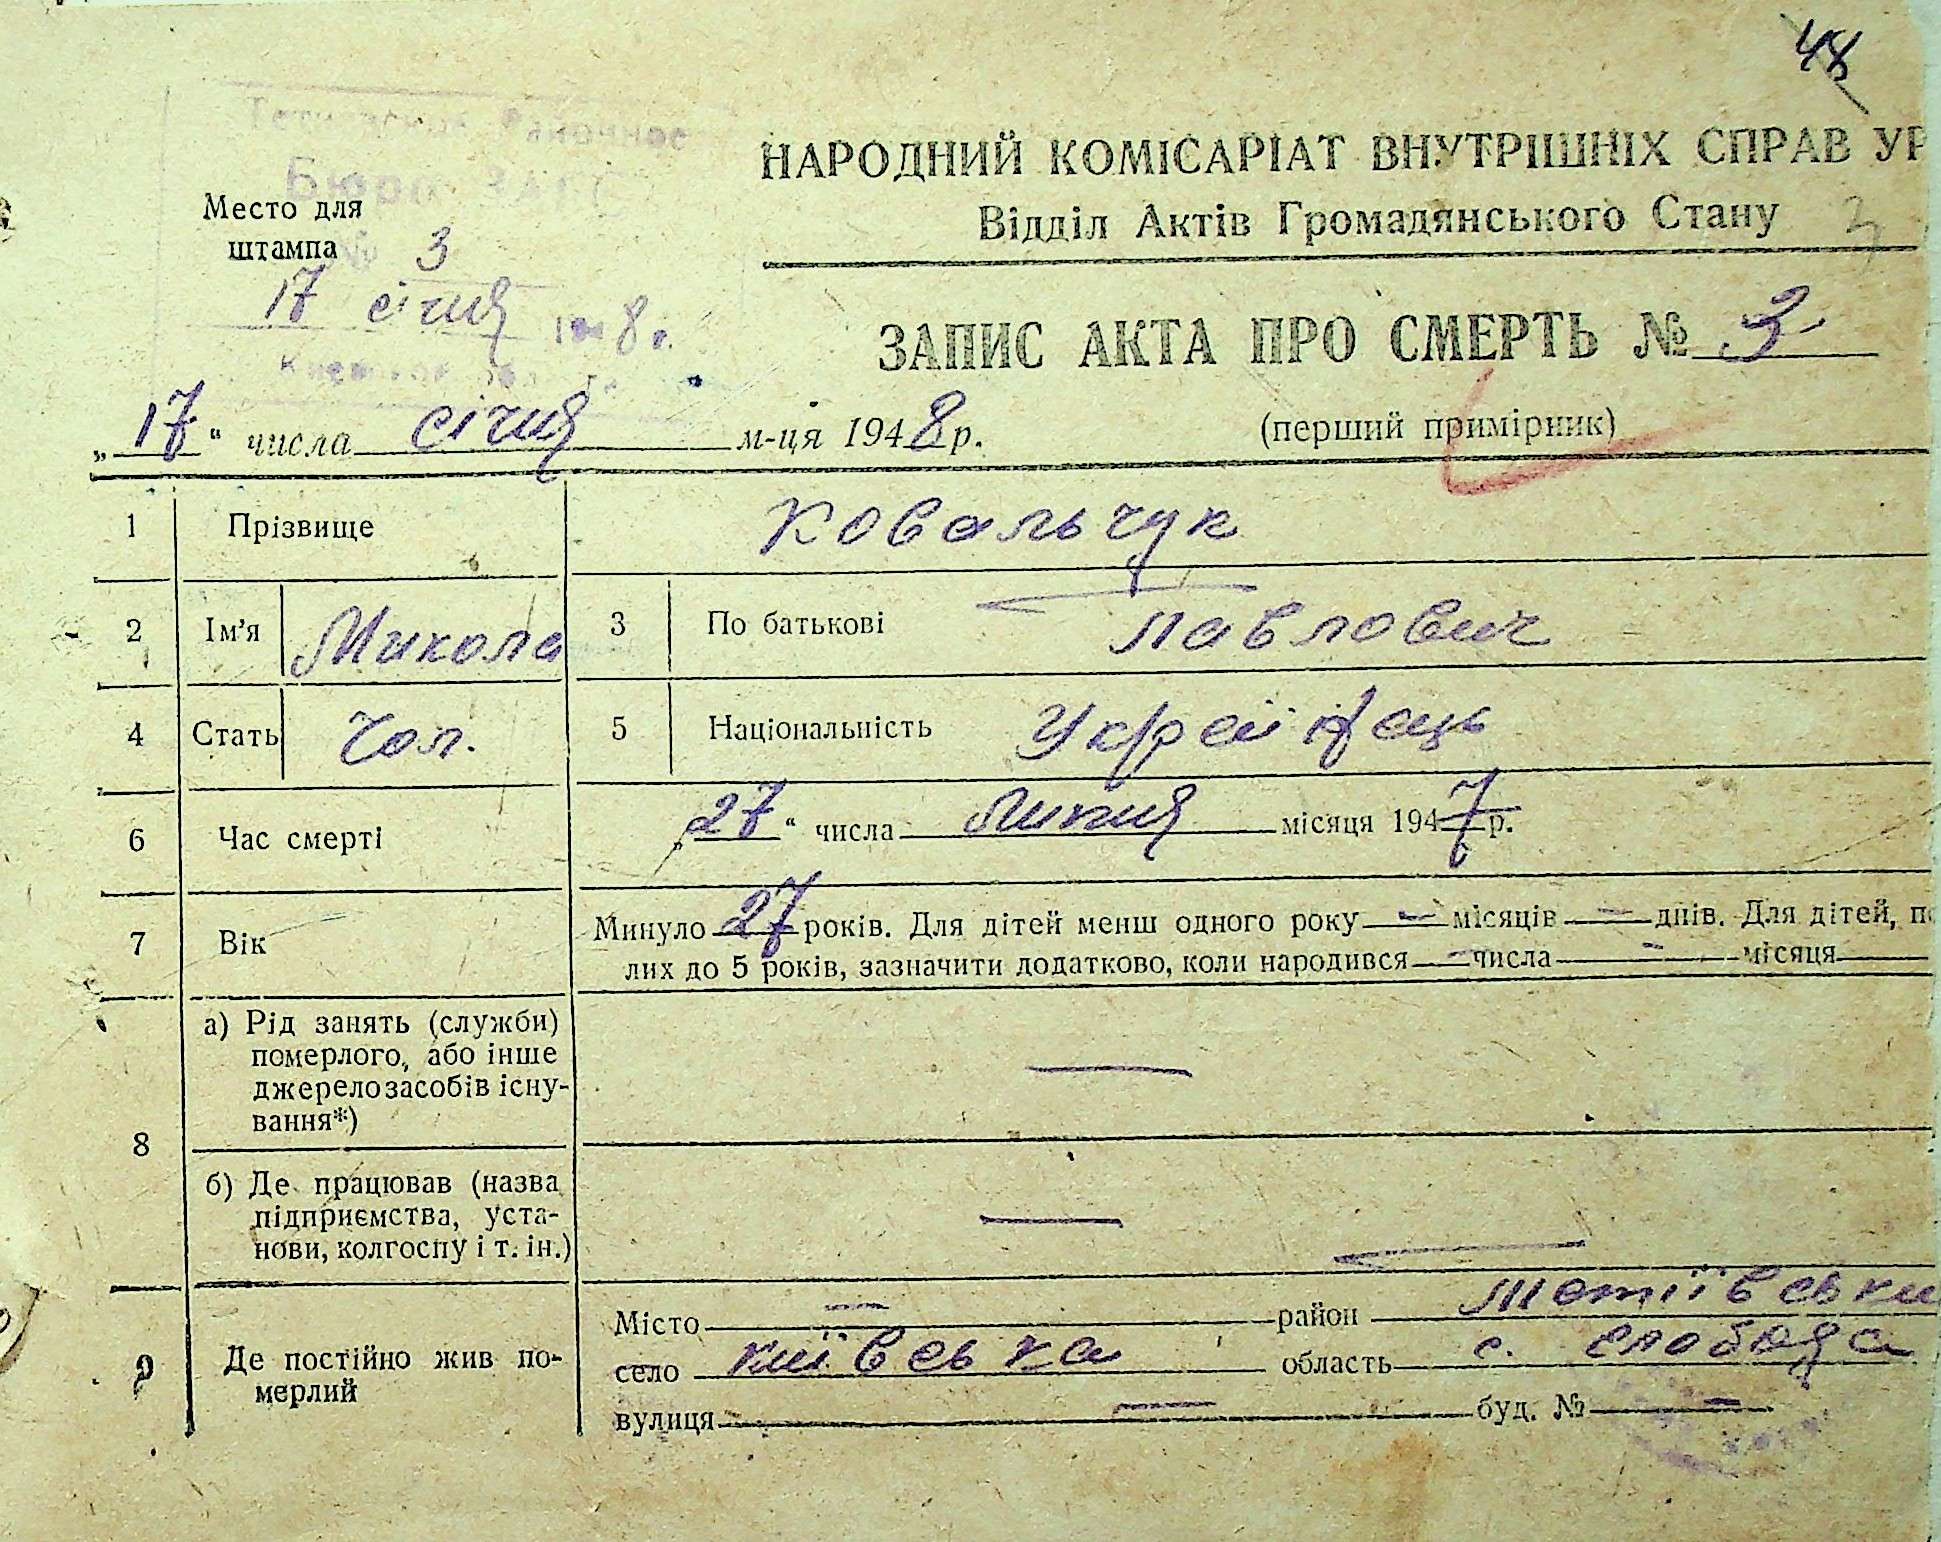 48
Районное
Бюро ЗАГС
НАРОДНИЙ КОМІСАРІАТ ВНУТРІШНІХ СПРАВ УР
Відділ Актів Громадянського Стану 3
Место для
штампа
№ 3
17 січня 1948 г.
ЗАПИС АКТА ПРО СМЕРТЬ № 3
„17“ числа січня м-ця 1948 р. (перший примірник)
1 Прізвище Ковальчук
2 Ім’я Микола 3 По батькові Павлович
4 Стать Чол. 5 Національність Українець
6 Час смерті „27“ числа липня місяця 1947 р.
7 Вік Минуло 27 років. Для дітей менш одного року — місяців — днів. Для дітей, по
лих до 5 років, зазначити додатково, коли народився — числа — місяця
8 а) Рід занять (служби)
померлого, або інше
джерело засобів існу-
вання*) —
б) Де працював (назва
підприємства, уста-
нови, колгоспу і т. ін.) —
9 Де постійно жив по-
мерлий
Місто — район Тетіївськи
село київська область с. слобода
вулиця — буд. № —